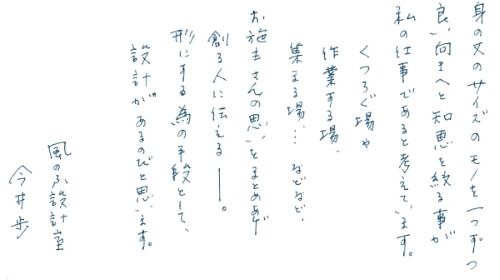 身の丈のサイズのモノを一つずつ
良い向きへと知恵を絞る事が
私の仕事であると考えています。
くつろぐ場や
作業する場、
集まる場、… などなど、
お施主さんの思いをまとめあげ
創る人に伝える――。
形にする為の手段として、
設計があるのだと思います。
風のふ設計室
今井歩